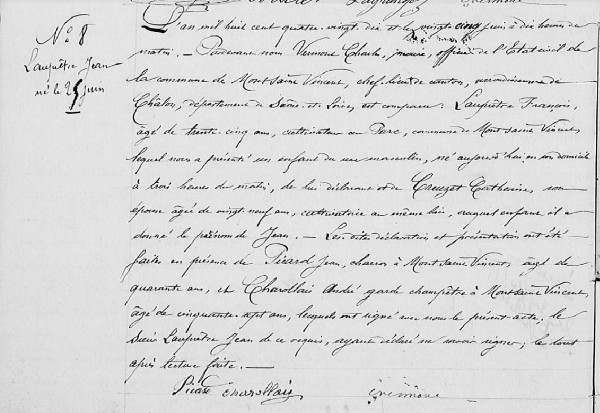 N° 8
Lauprêtre Jean
né le 25 juin
L'an mil huit cent quatre-vingt-dix et le vingt-cinq juin à dix heures du
matin. – Pardevant nous Charles, maire, officier de l'Etat civil de
la commune de Mont Saint Vincent, chef-lieu de canton, arrondissement de
Châlon, département de Saône-et-Loire, est comparu: Lauprêtre François,
âgé de trente-cinq ans, cultivateur au Parc, commune de Mont Saint Vincent,
lequel nous a présenté un enfant du sexe masculin, né aujourd'hui en son domicile
à trois heures du matin, de lui déclarant et de Creuzet Catherine, son
épouse âgée de vingt-neuf ans, cultivatrice au même lieu, auquel enfant il a
donné le prénom de Jean. – Les dites déclaration et présentation ont été
faites en présence de Picard Jean, charron à Mont Saint Vincent, âgé de
quarante ans, et Charollais André garde champêtre à Mont Saint Vincent,
âgé de cinquante-sept ans, lesquels ont signé avec nous le présent acte, le
sieur Lauprêtre Jean de ce requis, ayant déclaré ne savoir signer, le tout
après lecture faite. –
Picard Charollais